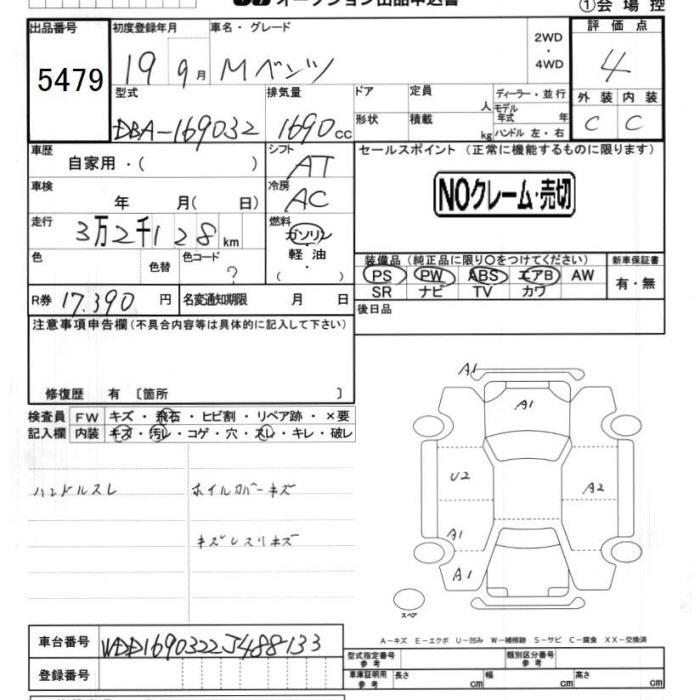 オークション出品申込書
①会場控
出品番号 初度登録年月 車名・グレード 2WD ・ 4WD 評価点
5479 19 9月 Mベンツ 4
型式 排気量 ドア 定員 人 ディーラー・並行 外装 内装
DBA-169032 1690cc 形状 積載 kg モデル年式 年 ハンドル 左・右 C C
車歴 自家用・( ) シフト AT セールスポイント (正常に機能するものに限ります)
車検 年 月( 日) 冷房 AC NOクレーム・売切
走行 3万2千128km 燃料 ガソリン
軽油
・
( )
色 色替 色コード ? 装備品(純正品に限り○をつけてください) 新車保証書
PS PW ABS エアB AW 有・無
SR ナビ TV カワ
R券 17.390円 名変通知期限 月 日
後日品
注意事項申告欄(不具合内容等は具体的に記入して下さい)
修復歴 有 〔箇所 〕
検査員記入欄 FW キズ・飛石・ヒビ割・リペア跡・×要
内装 キズ・汚レ・コゲ・穴・スレ・キレ・破レ
ハンドルスレ ホイルカバーキズ
キズレスリキズ
A1
A1
U2 A2
A1
A1
スペア
A-キズ E-エクボ U-凹み W-補修跡 S-サビ C-腐食 XX-交換済
車台番号 WDD1690322J488133
登録番号
型式指定番号 参考 類別区分番号 参考
車庫証明用 参考 長さ cm 幅 cm 高さ cm